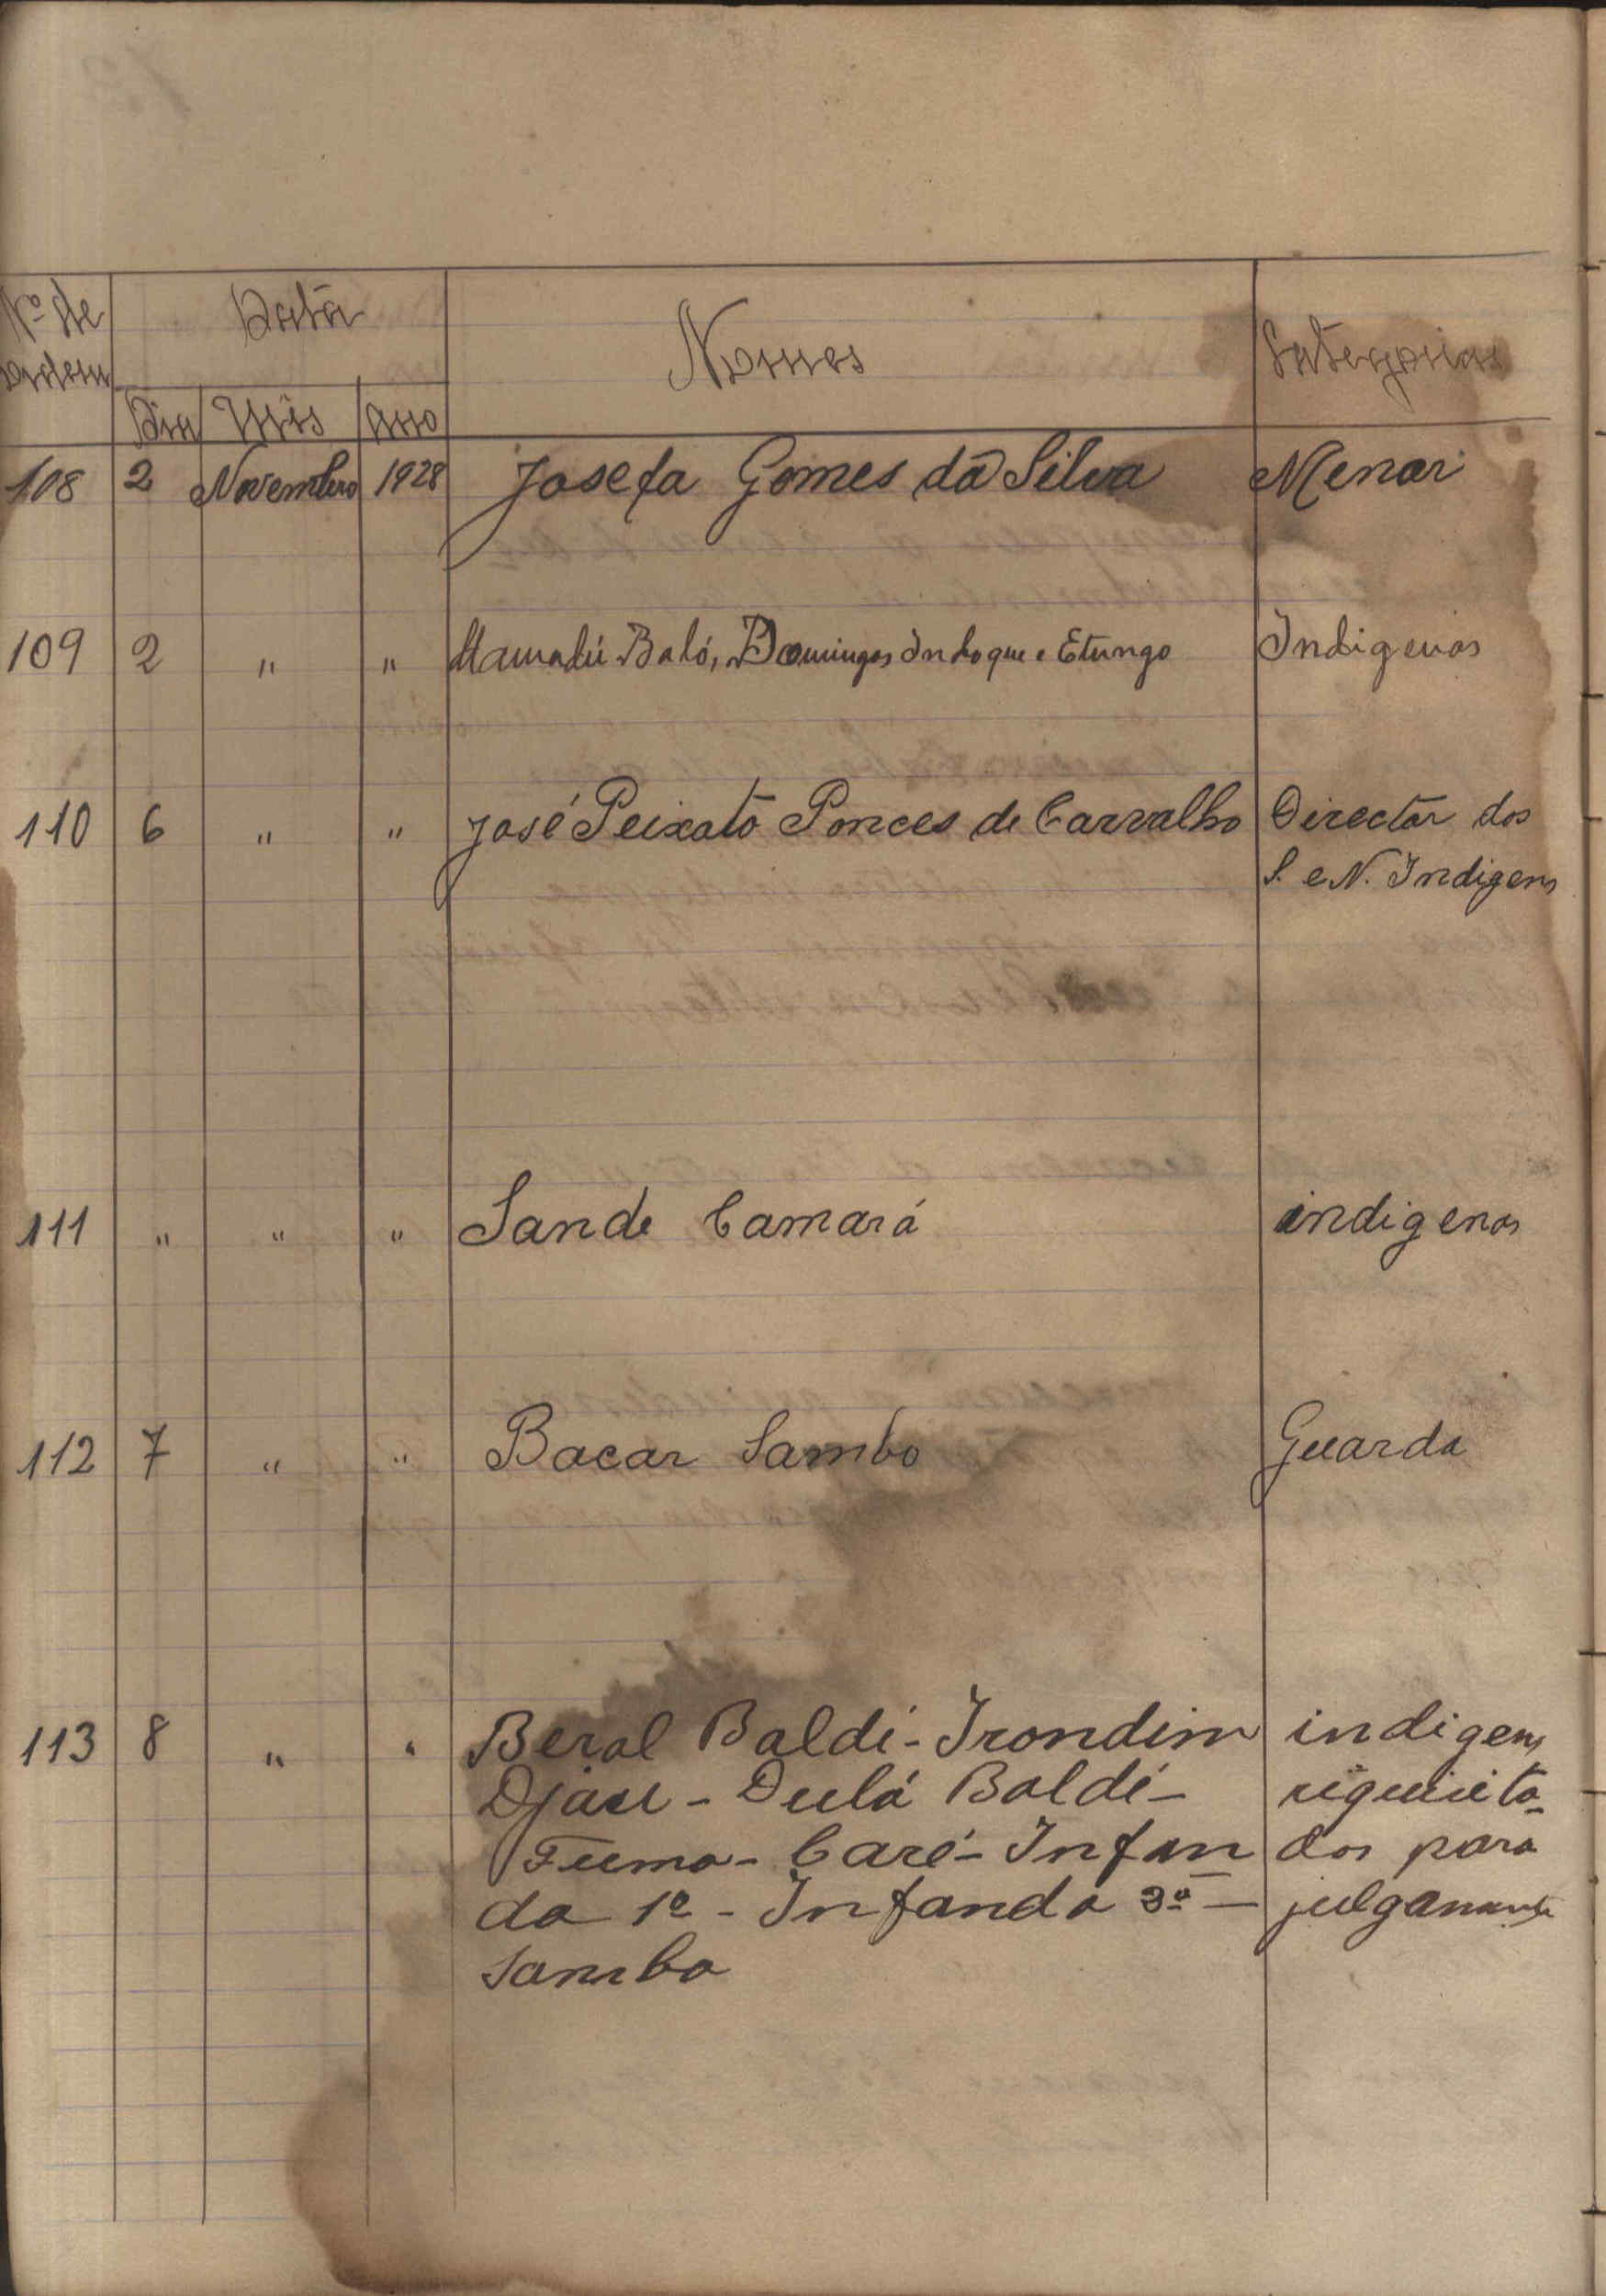 Nº de Data Nomes Categorias
ordem
Dia Mês Ano
108 2 Novembro 1928 Josefa Gomes da Silva Menor
109 2 " " Mamadú Baló, Domingos Indoque e Etungo Indigenas
110 6 " " José Peixoto Ponces de Carvalho Director dos
S. e N. Indigens
111 " " " Sande Camará indigenas
112 7 " " Bacar Sambo Guarda
113 8 " " Beral Baldi - Irondim indigens
Djau - Dulá Baldé - requisita-
Fuma - Caré - Infan dos para
da 1º - Infanda 3º - julgamento
Samba